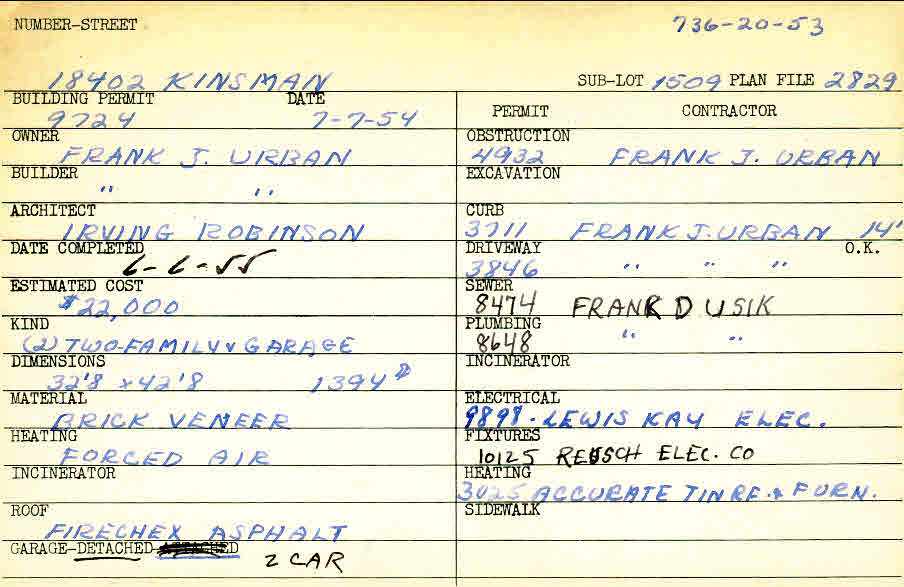 NUMBER-STREET 736-20-53
18402 KINSMAN SUB-LOT 1509 PLAN FILE 2829
BUILDING PERMIT DATE PERMIT CONTRACTOR
9724 7-7-54
OWNER OBSTRUCTION
FRANK J. URBAN 4932 FRANK J. URBAN
BUILDER EXCAVATION
" "
ARCHITECT CURB
IRVING ROBINSON 3711 FRANK J. URBAN 14'
DATE COMPLETED DRIVEWAY O.K.
6-6-55 3846 " " "
ESTIMATED COST SEWER
$22,000 8474 FRANK DUSIK
KIND PLUMBING
(2) TWO-FAMILY & GARAGE 8648 " "
DIMENSIONS INCINERATOR
32'8 x 42'8 1394
MATERIAL ELECTRICAL
BRICK VENEER 9898. LEWIS KAY ELEC.
HEATING FIXTURES
FORCED AIR 10125 REUSCH ELEC. CO
INCINERATOR HEATING
3025 ACCURATE TIN RE. & FURN.
ROOF SIDEWALK
FIRECHEX ASPHALT
GARAGE-DETACHED ATTACHED 2 CAR